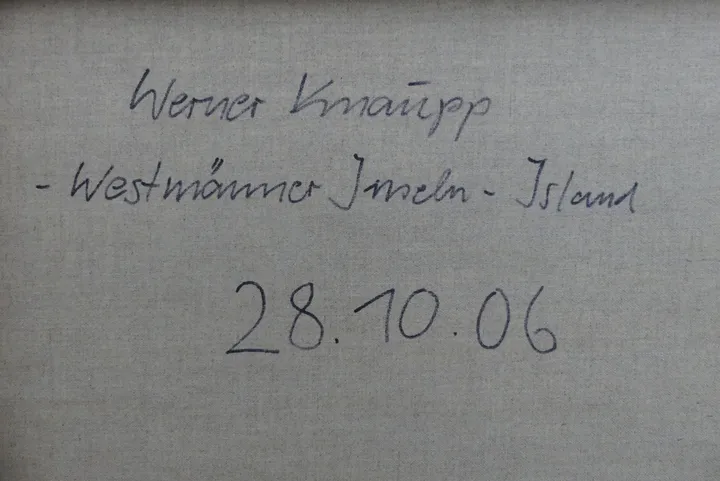 Werner Knaupp
- Westmänner Inseln - Island
28.10.06